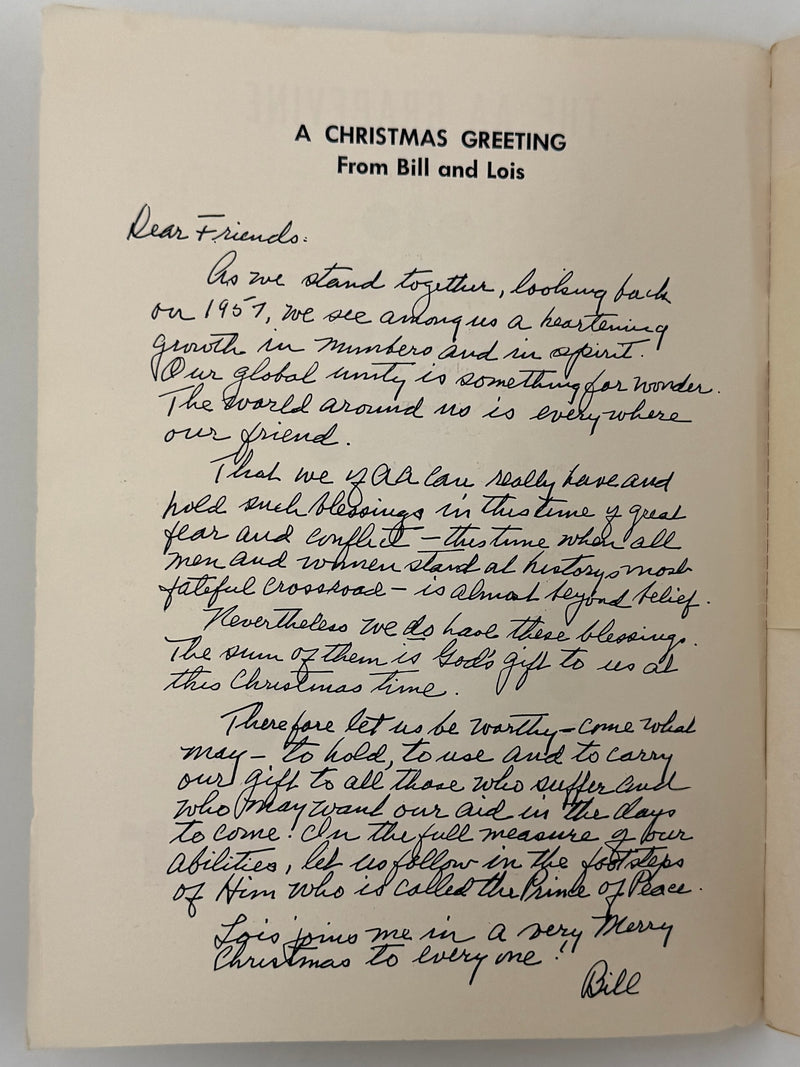 A CHRISTMAS GREETING
From Bill and Lois
Dear Friends:
As we stand together, looking back
on 1957, we see among us a heartening
growth in numbers and in spirit.
Our global unity is something for wonder.
The world around us is everywhere
our friend.
That we of AA can really have and
hold such blessings in this time of great
fear and conflict – this time when all
men and women stand at historys most
fateful crossroad – is almost beyond belief.
Nevertheless we do have these blessings.
The sum of them is God's gift to us at
this Christmas time.
Therefore let us be worthy – come what
may – to hold, to use and to carry
our gift to all those who suffer and
who may want our aid in the days
to come. In the full measure of our
abilities, let us follow in the footsteps
of Him who is called the Prince of Peace.
Lois joins me in a very Merry
Christmas to every one!!
Bill